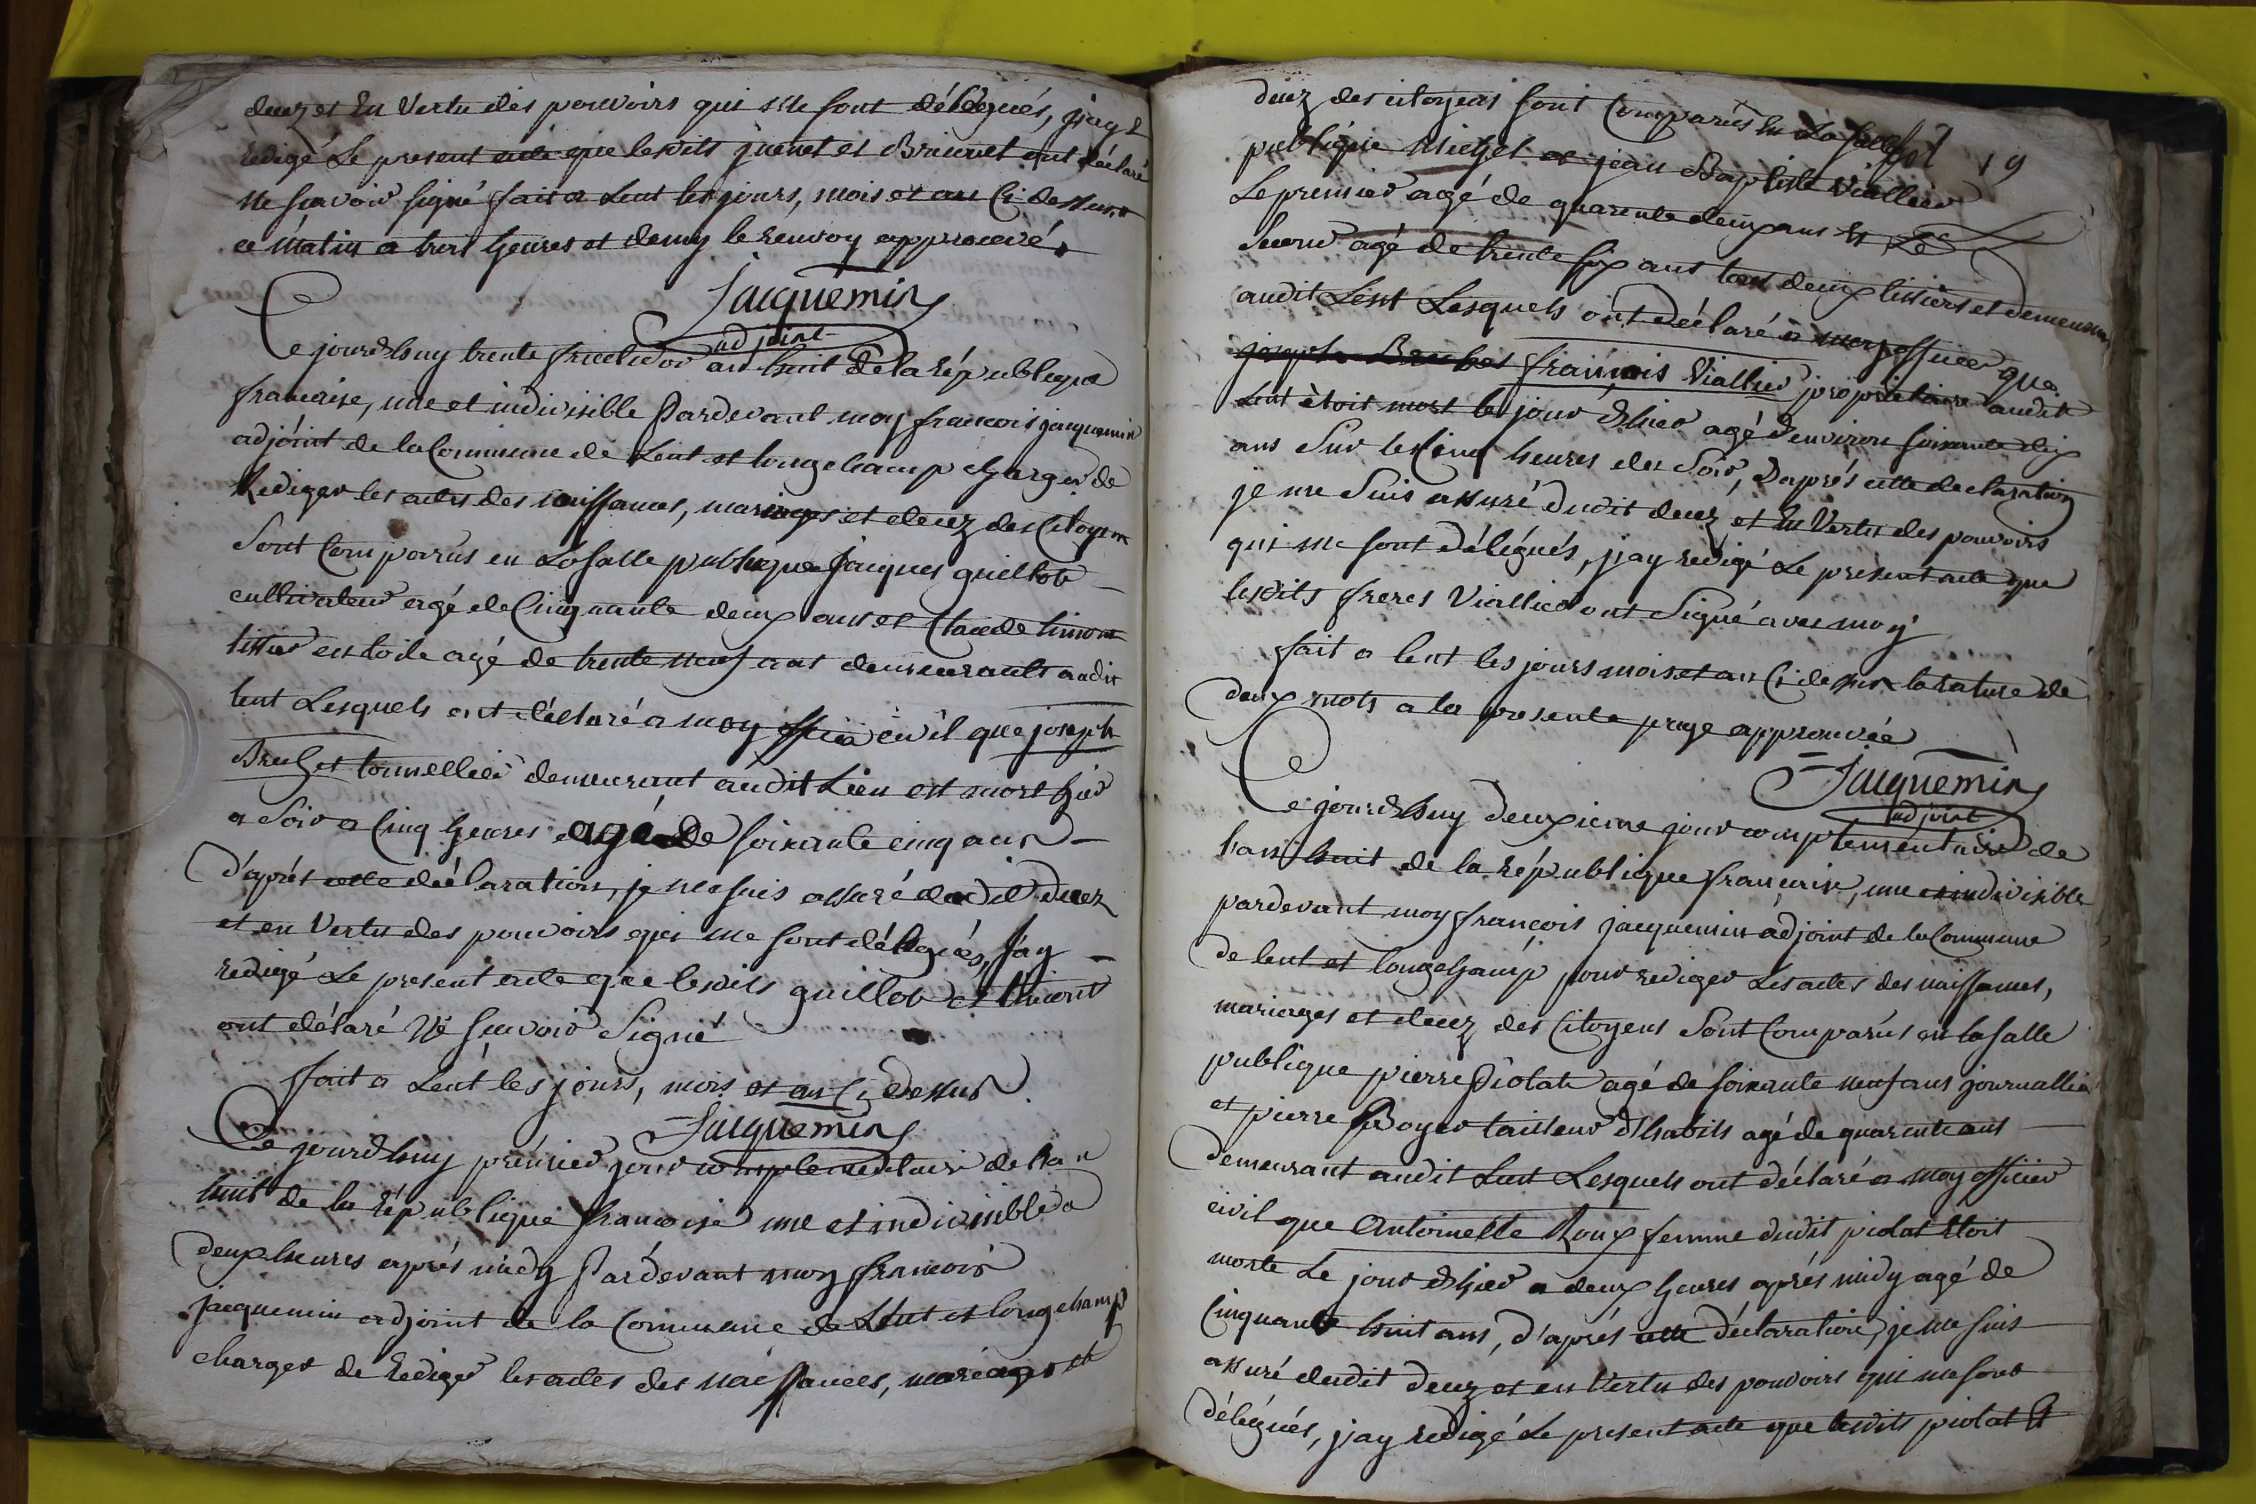 decez et En Vertu des pouvoirs qui me sont délégués, j'ay
redigé Le present acte que lesdits juenet et Brunet ont déclaré
ne scavoir signé fait a Lent les jours, mois et an Ci dessus
ce matin a huit heures et demy le renvoy approuvé.
Jacquemin
adjoint
Ce jourd'huy trente fructidor an huit de la République
francaise, une et indivisible Pardevant moy francois jacquemin
adjoint de la Commune de Lent et longchamp Charger de
Rediger les actes des naissances, mariages et decez des Citoyens
Sont Comparus en La salle publique Jacques guillot
cultivateur agé de Cinquante deux ans et Claude timont
tissier en toile agé de trente neuf ans demeurants audit
lent Lesquels ont déclaré a moy officier civil que joseph
Brechet tonnellier demeurant audit Lieu est mort hier
a Soir a Cinq heures agé De soixante cinq ans
D'aprés cette déclaration, je me suis assuré dudit decez
et en Vertu des pouvoirs qui me sont délégués, Jay
redigé Le present acte que lesdits guillot et timont
ont déclaré Ne scavoir Signé
fait a Lent les jours, mois et an Ci Dessus
Jacquemin
Ce jourd'huy prémier jour complementaire de l'an
huit de la République francoise une et indivisible a
deux heures aprés midy Pardevant moy francois
jacquemin adjoint de la Commune de Lent et longchamp
charger de Rediger les actes des naissances, mariages et
19
decez des citoyens sont Comparus En La salle
publique Michel et jean Baptiste Viallier
Le premier agé de quarente deux ans Et Le
Second agé de trente six ans tous deux tissiers et demeurant
audit Lent Lesquels ont Déclaré a moy officier que
francois Viallier propriétaire audit
Lent étoit mort le jour d'hier agé d'environ soixante dix
ans Sur les Cinq heures du Soir, D'aprés cette declaration
je me Suis assuré dudit decez et En Vertu des pouvoirs
qui me sont délégués, j'ay redigé Le present acte que
lesdits freres Viallier ont Signé avec moy
fait a lent les jours mois et an Ci dessus la rature de
deux mots a la presente page approuvée
Jacquemin
adjoint
Ce jourd'huy deuxieme jour complementaire de
l'an huit de la République francaise, une et indivisible
pardevant moy francois jacquemin adjoint de la Commune
de lent et longchamp pour rediger Les actes des naissances,
mariages et decez des Citoyens Sont Comparus en la salle
publique pierre Piolat agé de soixante neuf ans journallier
et pierre Boyer tailleur d'habits agé de quarente ans
demeurant audit Lent Lesquels ont déclaré a moy officier
civil que Antoinette Roux femme dudit piolat Etoit
morte Le jour d'hier a deux heures aprés midy agé de
Cinquante huit ans, d'aprés cette déclaration, je me suis
assuré dudit decez et en Vertu des pouvoirs qui me sont
délégués, j'ay redigé Le present acte que lesdits piolat Et